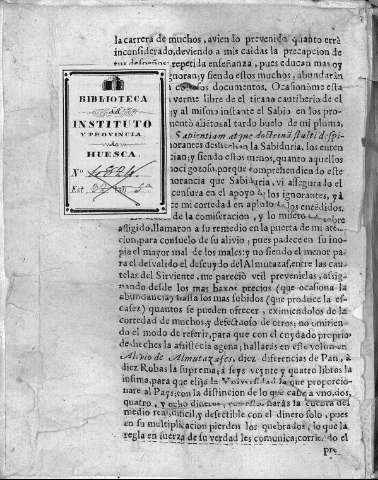 la carrera de muchos, aviendo prevenido quanto errè
inconsiderado, deviendo a mis caidas la precaucion de
repetida enseñanza, pues educan mas oy
ignoran; y siendo estos muchos, abundarán
documentos. Ocasionóme esta
verme libre de el tirano cautiberio de el
y al mismo instante el Sabio en los
mento alietos al tardo buelo de mi pluma,
Sapientiam atque doctrinã stulti despi-
norances deshechan la Sabiduria, los enten
cian; y siendo estos menos, quanto aquellos
noci gozoso, porque comprehendiendo este
norancia que Sabiduria, vi assegurado el
censura en el apoyo de los ignorantes, y à
mi cortedad en aplauso de los entendidos.
de la comiseracion, y lo
afligido, llamaron a su remedio en la puerta de mi aten
cion, para consuelo de su alivio, pues padecen en su ino-
pia el mayor mal de los males; y no siendo el menor pa-
ra el desvalido el descuydo del Almutazaf, entre las cau-
telas del Sirviente, me pareciò veril prevenirlas, assig-
nando desde los mas baxos precios (que ocasiona la
abundancia) hasta los mas subidos (que produce la es-
casez) quantos se pueden ofrecer, eximiendolos de la
cortedad de muchos, y defectuoso de otros; no omitien-
do el modo de referir, para que con el cuydado proprio
deshechas la assistencia agena, hallarás en este volumen
Alivio de Almutazafes, diez diferencias de Pan, à
diez Robas la suprema, à seys veynte y quatro libras la
infima, para que elija la Vniversidad la que proporcio-
nare al Pays; con la distincion de lo que cabe a vno, dos,
quatro, y ocho dineros,
medio real, dificil, y defectible con el dinero solo, pues
en su multiplicacion pierden los quebrados, lo que la
regla en fuerza de su verdad les comunica; corriendo el
pre-
BIBLIOTECA
del
INSTITUTO
Y PROVINCIA
de
HUESCA.
Nº
Est.